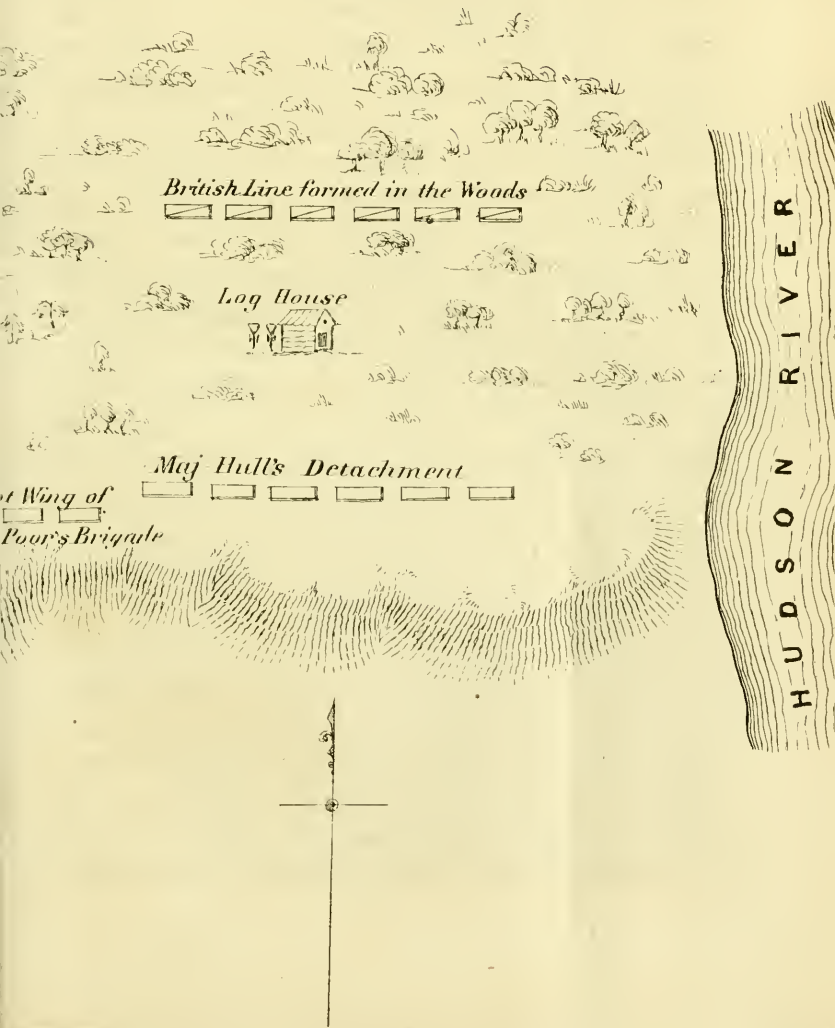 British Line formed in the Woods
Log House
Maj Hull's Detachment
Wing of
Poor's Brigade
HUDSON RIVER